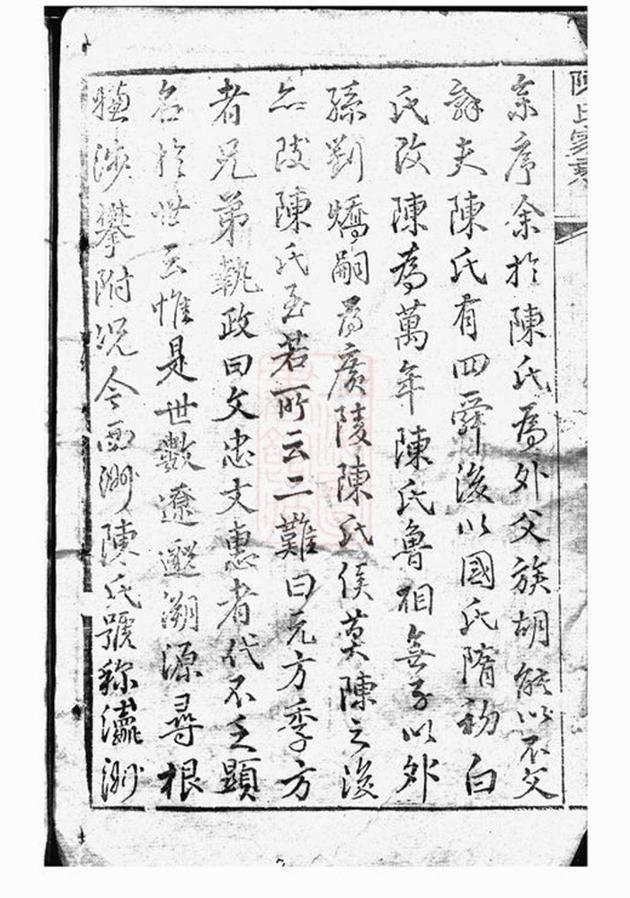 陳氏家乘
宗序余於陳氏為外父族胡能以不文
辭夫陳氏有四舜後以國氏隋初白
氏改陳為萬年陳氏魯相無子以外
孫劉嬌嗣為廣陵陳氏侯莫陳之後
亦改陳氏至若所云二難曰元方季方
者兄弟執政曰文忠文惠者代不乏顯
名於世云惟是世數遼邈溯源尋根
涉攀附況今西洲陳氏號稱瀛洲